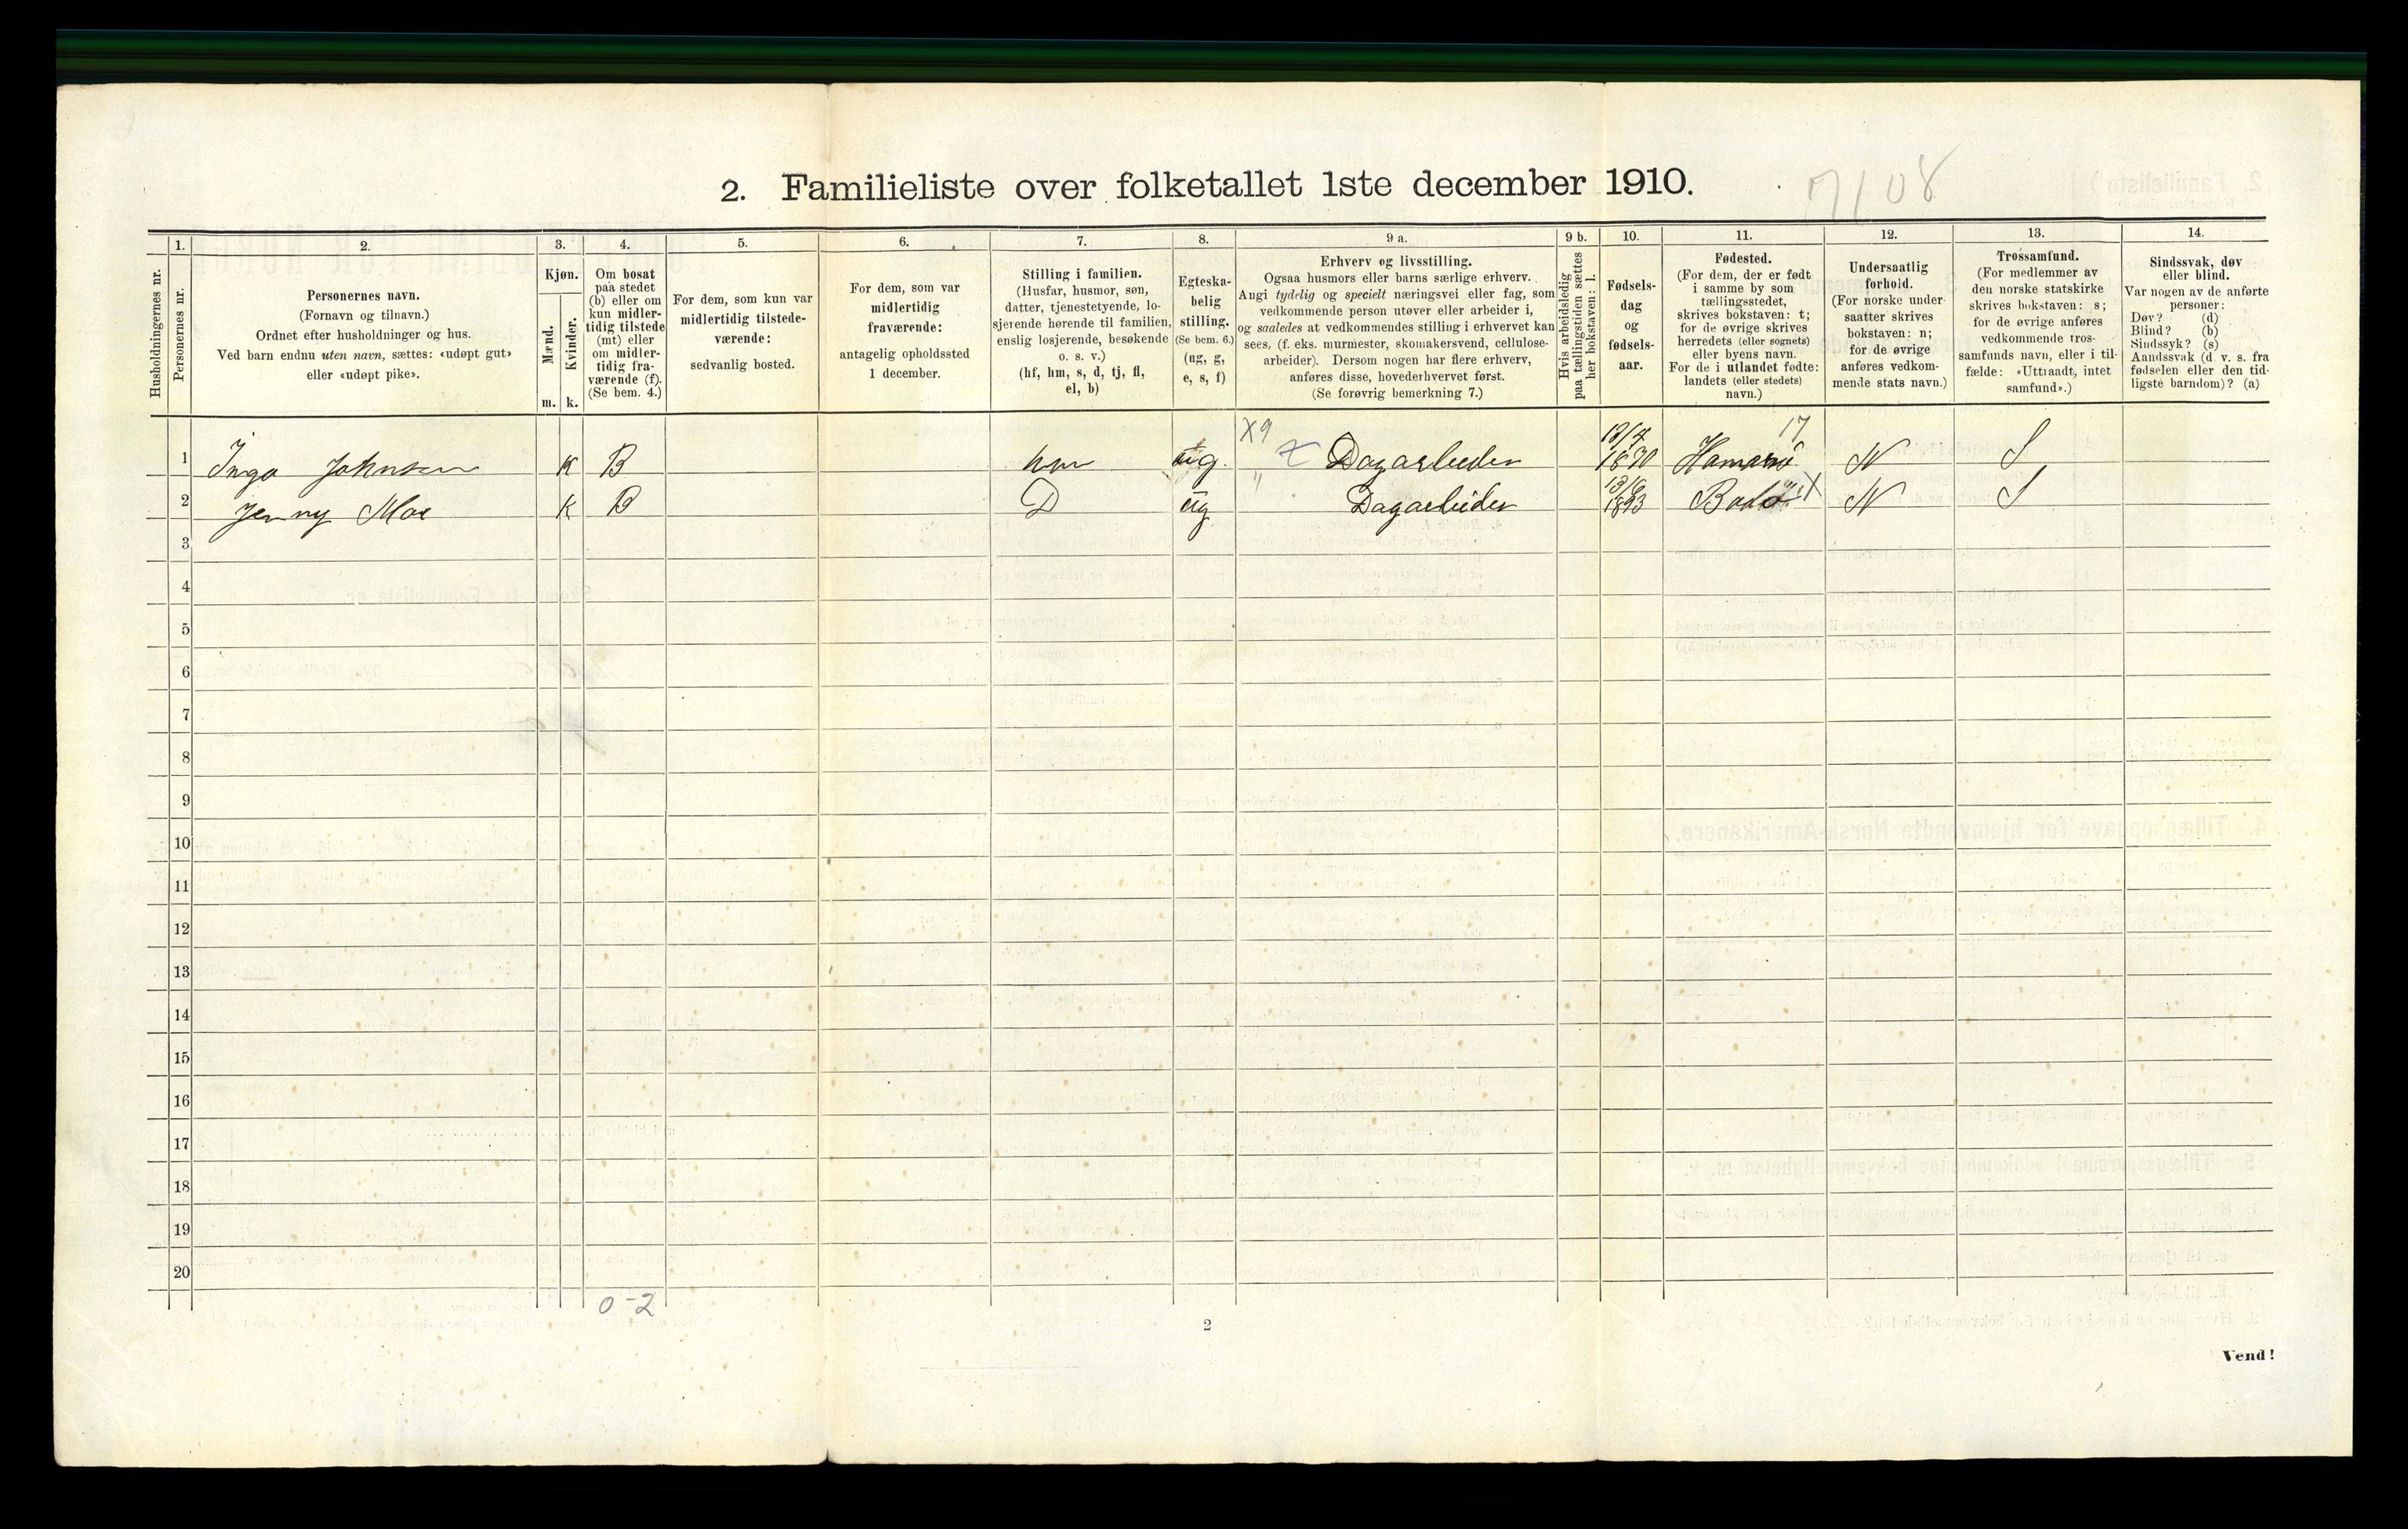 7108
2. Familieliste over folketallet 1ste december 1910.
1. 2. 3. 4. 5. 6. 7. 8. 9 a. 9 b. 10. 11. 12. 13. 14.
Husholdningernes nr.
Personernes nr.
Personernes navn.
(Fornavn og tilnavn.)
Ordnet efter husholdninger og hus.
Ved barn endnu uten navn, sættes: «udøpt gut»
eller «udøpt pike».
Kjøn.
Mænd.
Kvinder.
m. k.
Om bosat
paa stedet
(b) eller om
kun midler-
tidig tilstede
(mt) eller
om midler-
tidig fra-
værende (f).
(Se bem. 4.)
For dem, som kun var
midlertidig tilstede-
værende:
sedvanlig bosted.
For dem, som var
midlertidig
fraværende:
antagelig opholdssted
1 december.
Stilling i familien.
(Husfar, husmor, søn,
datter, tjenestetyende, lo-
sjerende hørende til familien,
enslig losjerende, besøkende
o. s. v.)
(hf, hm, s, d, tj, fl,
el, b)
Egteska-
belig
stilling.
(Se bem. 6.)
(ug, g,
e, s, f)
Erhverv og livsstilling.
Ogsaa husmors eller barns særlige erhverv.
Angi tydelig og specielt næringsvei eller fag, som
vedkommende person utøver eller arbeider i,
og saaledes at vedkommendes stilling i erhvervet kan
sees, (f. eks. murmester, skomakersvend, cellulose-
arbeider). Dersom nogen har flere erhverv,
anføres disse, hovederhvervet først.
(Se forøvrig bemerkning 7.)
Hvis arbeidsledig
paa tællingstiden sættes
her bokstaven: l.
Fødsels-
dag
og
fødsels-
aar.
Fødested.
(For dem, der er født
i samme by som
tællingsstedet,
skrives bokstaven: t;
for de øvrige skrives
herredets (eller sognets)
eller byens navn.
For de i utlandet fødte:
landets (eller stedets)
navn.)
Undersaatlig
forhold.
(For norske under-
saatter skrives
bokstaven: n;
for de øvrige
anføres vedkom-
mende stats navn.)
Trossamfund.
(For medlemmer av
den norske statskirke
skrives bokstaven: s;
for de øvrige anføres
vedkommende tros-
samfunds navn, eller i til-
fælde: «Uttraadt, intet
samfund».)
Sindssvak, døv
eller blind.
Var nogen av de anførte
personer:
Døv? (d)
Blind? (b)
Sindssyk? (s)
Aandssvak (d. v. s. fra
fødselen eller den tid-
ligste barndom)? (a)
X9 13/4 17
1 Inga Johnsen K B hm ug. Dagarbeider 1870 Hamarø N S
" 13/6
2 Jenny Moe K B D ug Dagarbeider 1893 Bodø X N S
3
4
5
6
7
8
9
10
11
12
13
14
15
16
17
18
19
20
0-2
2
Vend!